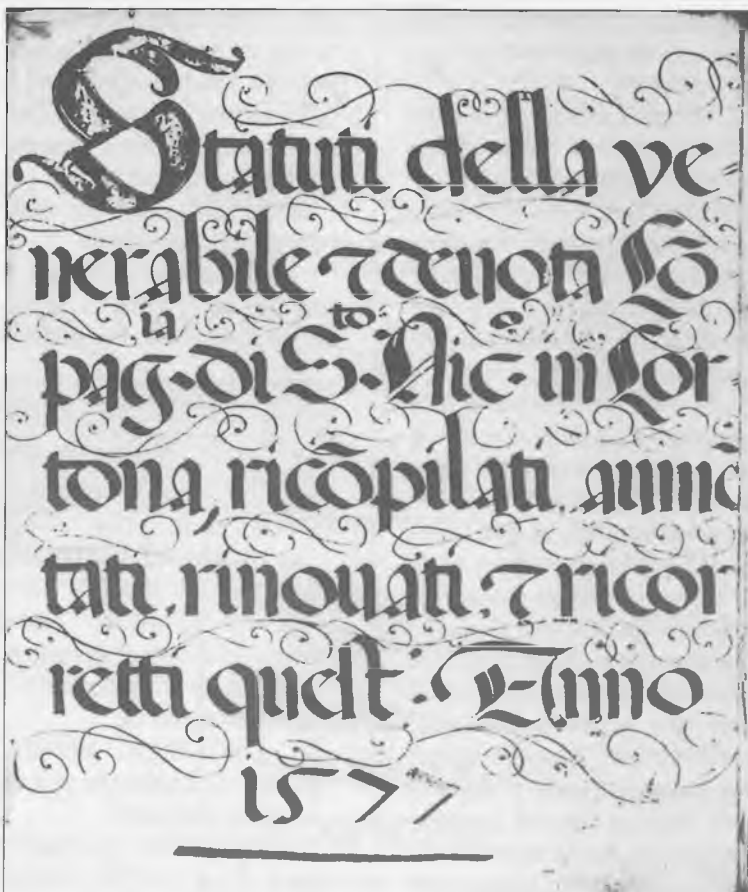 Statuti della ve
nerabile ⁊ deuota Cō
pag.ia di S.to Nic.o in Cor
tona, ricōpilati. aumē
tati, rinouati, ⁊ ricor
retti quest. Anno
1577